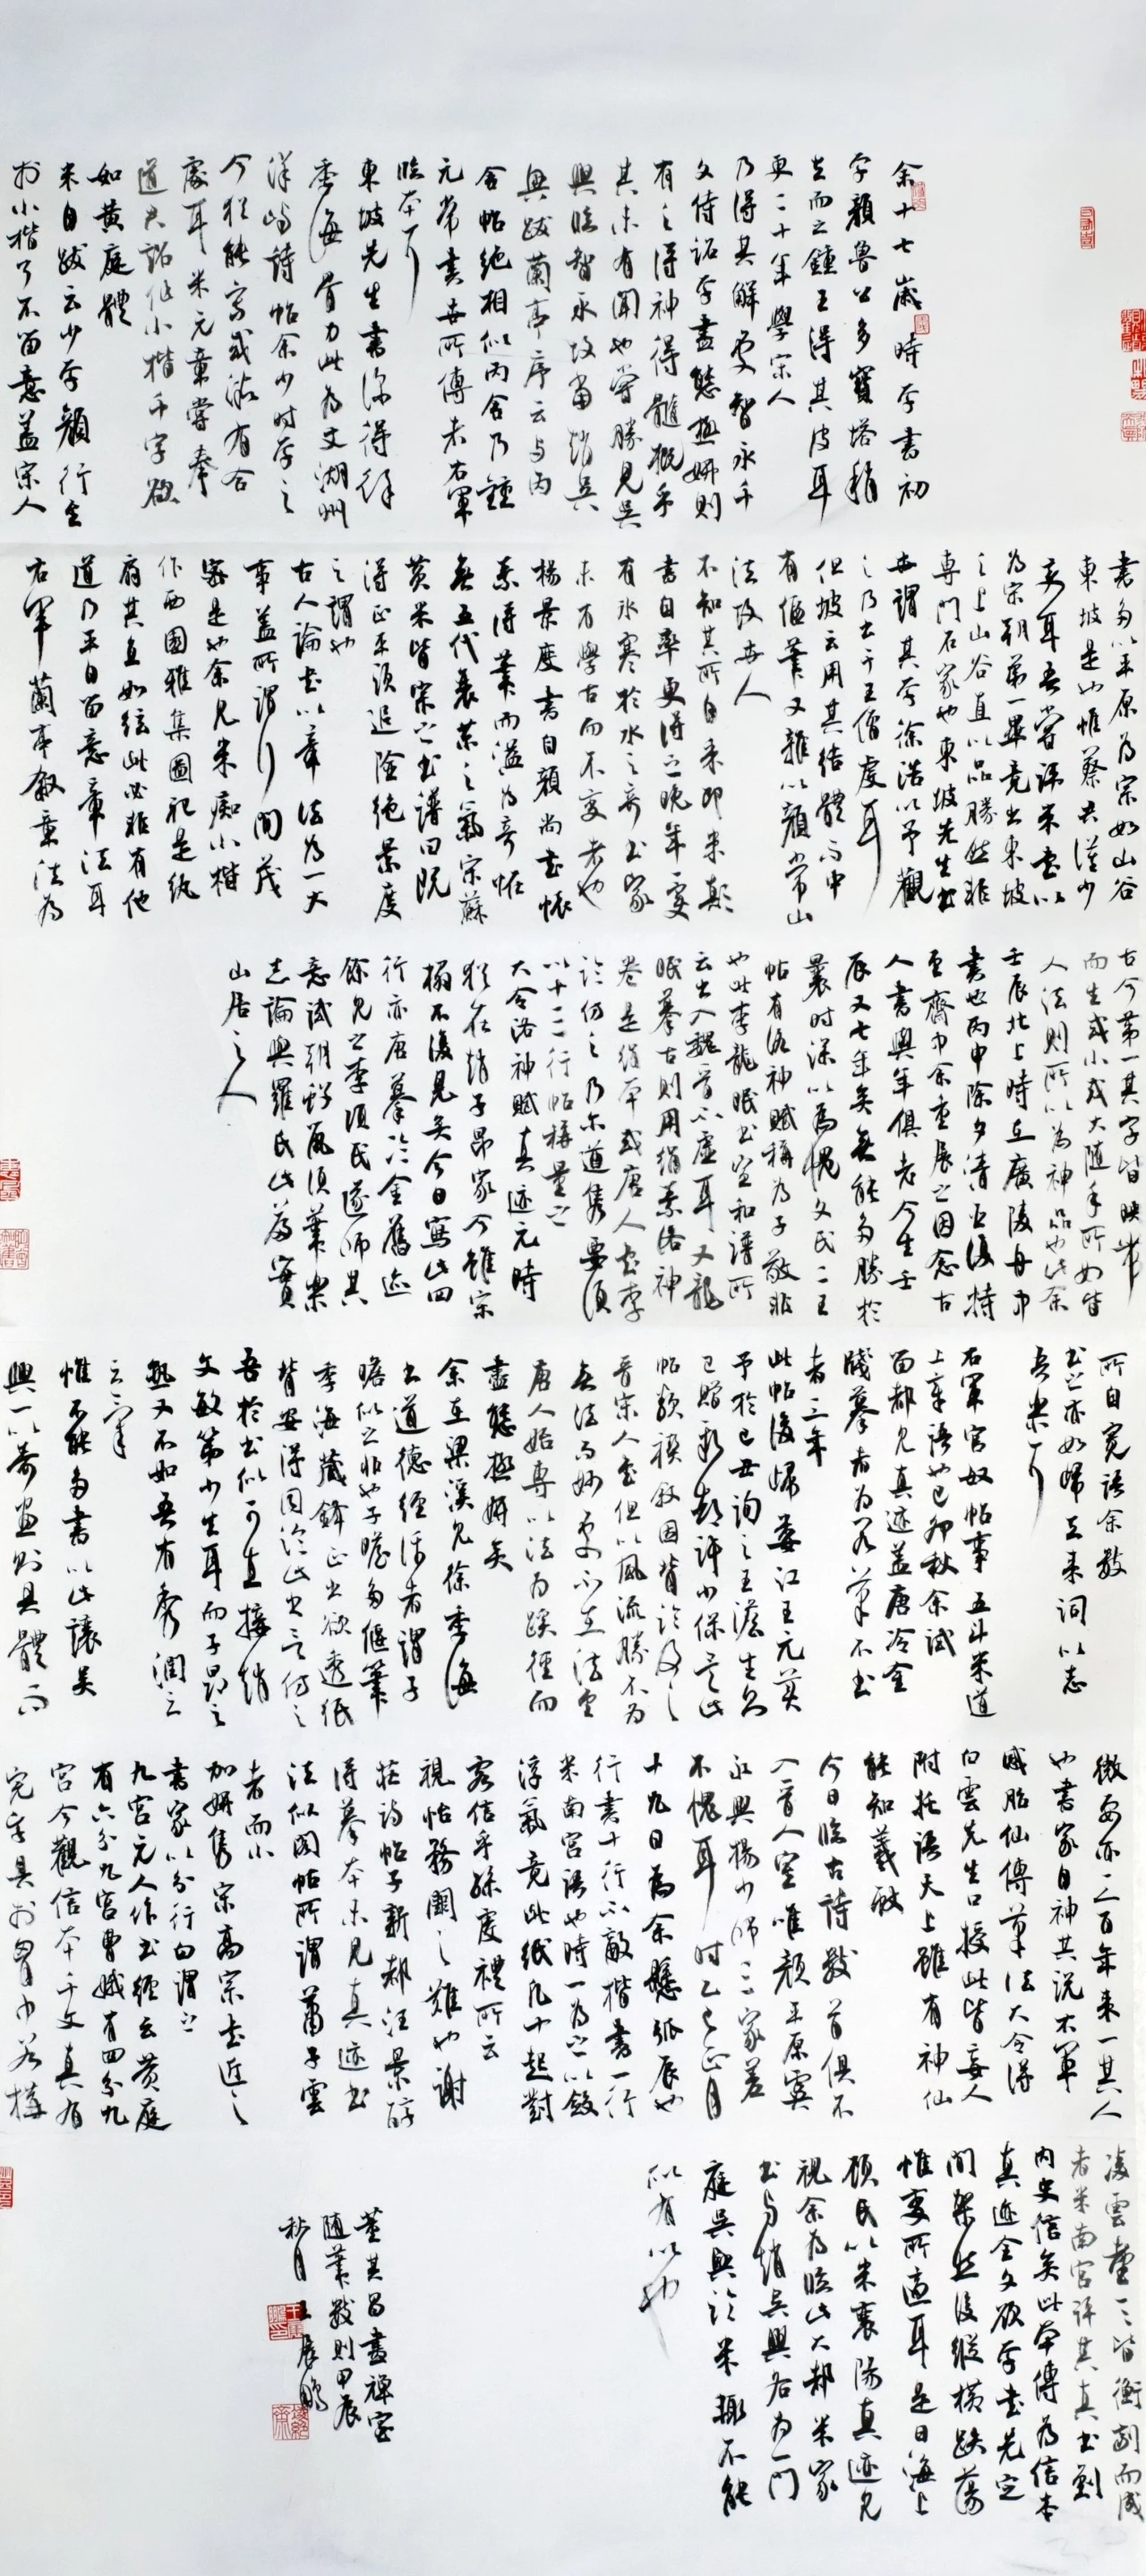 余十七歲時學書初
學顏魯公多寶塔稍
去而之鍾王得其皮耳
更二十年學宋人
乃得其解處智永千
文侍詔學書盡態極妍則
有之得神得髓概乎
其未有聞也嘗勝見吳
興臨智永故當趙吳
興跋蘭亭序云与丙
舍帖絕相似丙舍乃鍾
元常書世所傳者右軍
臨本耳
東坡先生書深得徐
季海骨力此為文湖州
洋嶼詩帖余少時學之
今猶能寫或微有合
處耳米元章嘗奉
道君詔作小楷千字欲
如黃庭體
米自跋云少學顏行至
於小楷了不留意蓋宋人
書多以平原為宗如山谷
東坡是也惟蔡君謨少
變耳吾嘗評米書以
為宋朝第一畢竟出東坡
之上山谷直以品勝然非
專門名家也東坡先生書
世謂其學徐浩以予觀
之乃出于王僧虔耳
但坡云用其結體而中
有偃筆又雜以顏常山
法故世人
不知其所自來即米顛
書自率更得之晚年一變
有冰寒於水之奇書家
未有學古而不變者也
楊景度書自顏尚書懷
素得筆而溢為奇怪
無五代衰茶之氣宋蘇
黃米皆宗之書譜曰既
得正平須追險絕景度
之謂也
古人論書以章法為一大
事蓋所謂行間茂
密是也余見米癡小楷
作西園雅集圖記是紈
扇其直如弦此必非有他
道乃平日留意章法耳
右軍蘭亭敘章法為
古今第一其字皆映帶
而生或小或大隨手所如皆
入法則所以為神品也此余
壬辰北上時在廣陵舟中
書也丙申除夕清復持
至齋中余重展之因念古
人書與年俱老今年壬
辰又七年矣無能多勝於
曩時深以為愧文氏二王
帖有洛神賦稱為子敬非
也此李龍眠書宣和譜所
云出入魏晉不虛耳又龍
眠摹古則用絹素洛神
卷是絹本或唐人書李
臨仿之乃爾遒雋要須
以十三行帖稱量之
大令洛神賦真迹元時
猶在趙子昂家今雖宋
榻不復見矣今日寫此四
行亦唐摹冷金舊迹
餘見之李項氏遂師其
意試朝鮮鼠須筆樂
志論與羅氏此為實
山居之人
所自寬語余數
書之亦如歸去來詞以志
吾樂耳
右軍官奴帖事五斗米道
上章語也己卯秋余試
留都見真迹蓋唐冷金
牋摹者為閣筆不書
者三年
此帖後歸婁江王元美
予於己丑詢之王澹生則
已贈新都許少保矣此
帖類禊敘因背臨及之
晉宋人書但以風流勝不為
無法而妙處不在法至
唐人始專以法為蹊徑而
盡態極妍矣
余至梁溪見徐季海
書道德經評者謂子
瞻似之非也子瞻多偃筆
季海藏鋒正書欲透紙
背安得同論此書仿之
吾於書似可直接趙
文敏第少生耳而子昂之
熟又不如吾有秀潤之
氣
惟不能多書以此讓吳
興一以畫則具體而
微要亦三百年來一具人
也書家自神其說右軍
感胎仙傳筆法大令得
白雲先生口授此皆妄人
附托語天上雖有神仙
能知羲獻
今日臨古詩數首俱不
入晉人室唯顏平原虞
永興楊少師三家差
不愧耳時乙巳正月
十九日為余懸弧辰也
行書十行不敵楷書一行
米南宮語也時一為之以斂
浮氣竟此紙凡十起對
客信乎孫虔禮所云
視怡務闌之難也謝
莊詩帖予新都汪景醇
得摹本未見真迹書
法似閣帖所謂蕭子雲
者而小
加妍雋宋高宗書近之
書家以分行白謂之
九宮元人作書經云黃庭
有六分九宮曹娥有四分九
宮今觀信本千文真有
完字具於胸中若構
凌雲臺一一皆衡剖而成
者米南宮評其真書到
內史信矣此本傳為信本
真迹全文欲學書先定
間架然後縱橫跌蕩
惟變所適耳是日海上
顧氏以米襄陽真迹見
視余為臨此大都米家
書与趙吳興各為一門
庭吳興臨米輒不能
似有以也
董其昌畫禪室
隨筆數則甲辰
秋月王展鵬